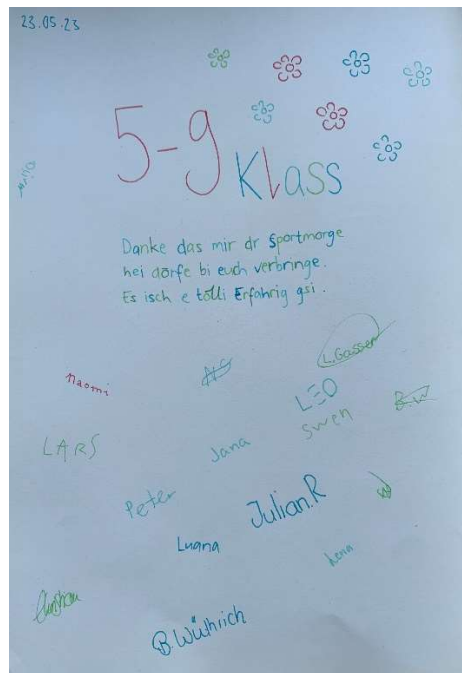 23.05.23
5-9 Klass
Danke das mir dr Sportmorge
hei dörfe bi euch verbringe.
Es isch e tolli Erfahrig gsi.
L.Gasser
Naomi
LEO
B.W
Swen
LARS
Jana
Peter
Julian.R
Luana
Lena
Christian
B.Wüthrich